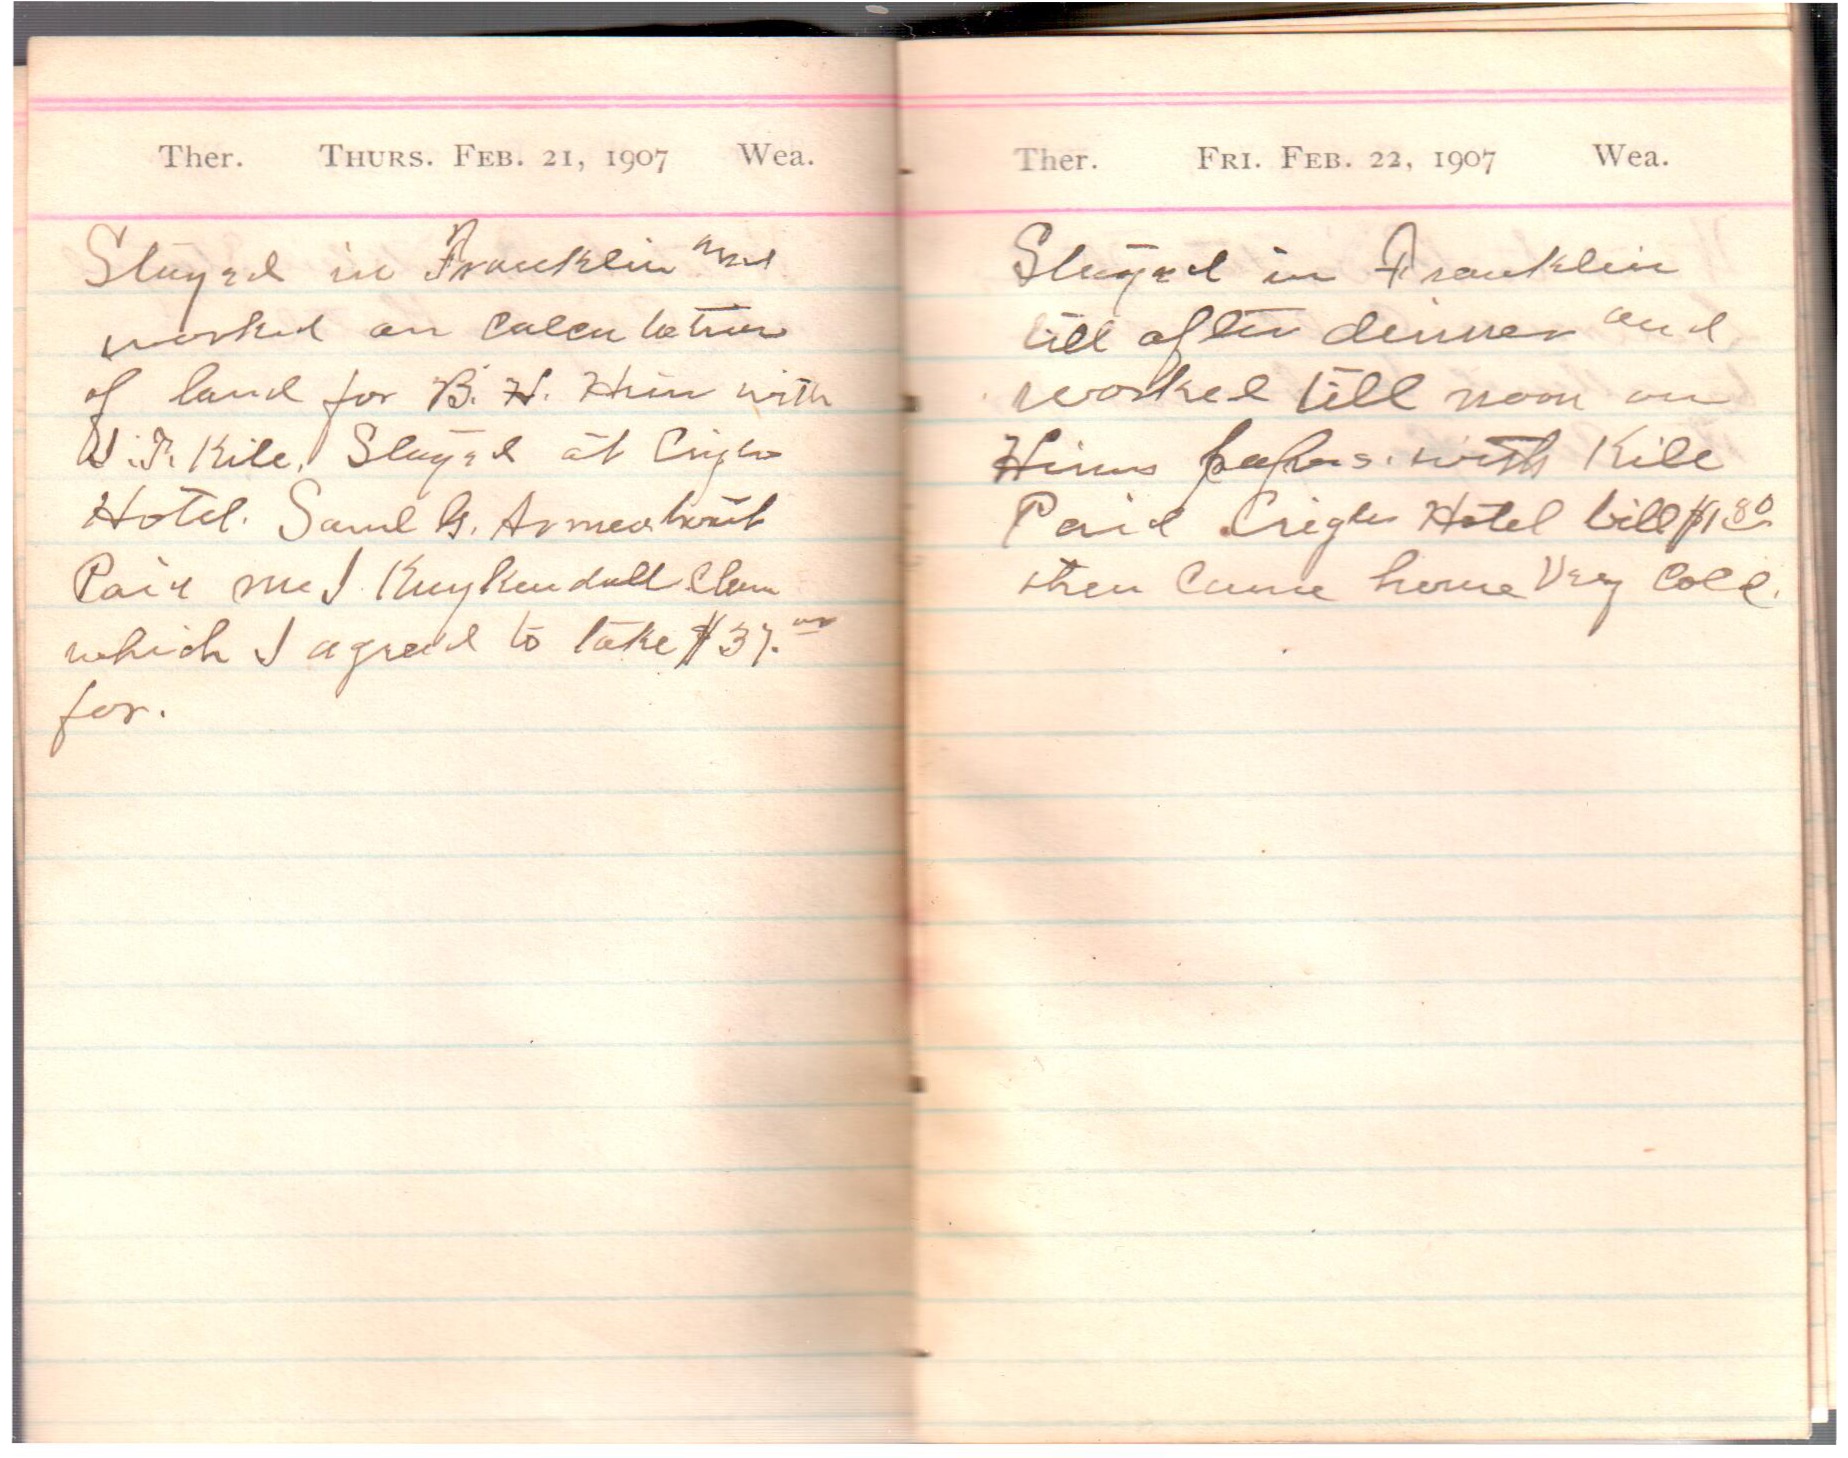 Ther. THURS. FEB. 21, 1907 Wea.
Stayed in Franklin and
worked on calculations
of land for B. H. with
Kile. Stayed at Crigler
Hotel. Saml G. Armentrout
Paid me J Kuykendall Claim
which I agreed to take $37.00
for.
Ther. FRI. FEB. 22, 1907 Wea.
Stayed in Franklin
till after dinner and
worked till noon on
papers. with Kile
Paid Crigler Hotel bill $1.80
then came home Very Cold.